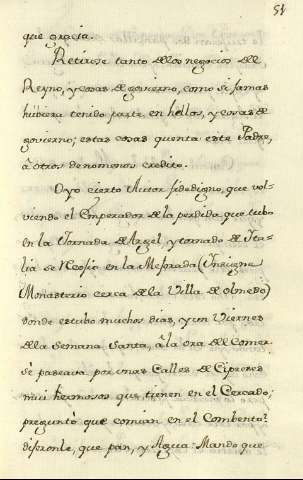 51
que gracia.
Retirose tanto de los negocios del
Reyno, y cosas de govierno, como si jamas
hubiera tenido parte en hellos, y cosas de
govierno; estas cosas quenta este Padre,
à otros de no menor credito.
Oyo cierto Autor fidedigno, que vol-
viendo el Emperador de la perdida que tubo
en la Jornada de Argel y tornado de Ita-
lia se recojio en la Mejorada (Insigne
Monasterio cerca de la Villa de Olmedo)
donde estubo muchos dias, y un Viernes
de la Semana Santa, à la ora de comer
se paseava por unas Calles de Cipreses
mui hermosos que tienen en el Cercado;
preguntò que comian en el Combento?
dijeronle, que pan, y Agua: Mando que